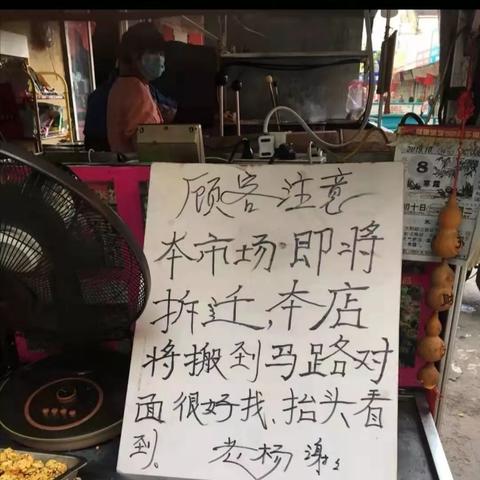 顾客注意
本市场即将
拆迁,本店
将搬到马路对
面很好找、抬头看
到。老杨谢谢
8
寒露
初十日